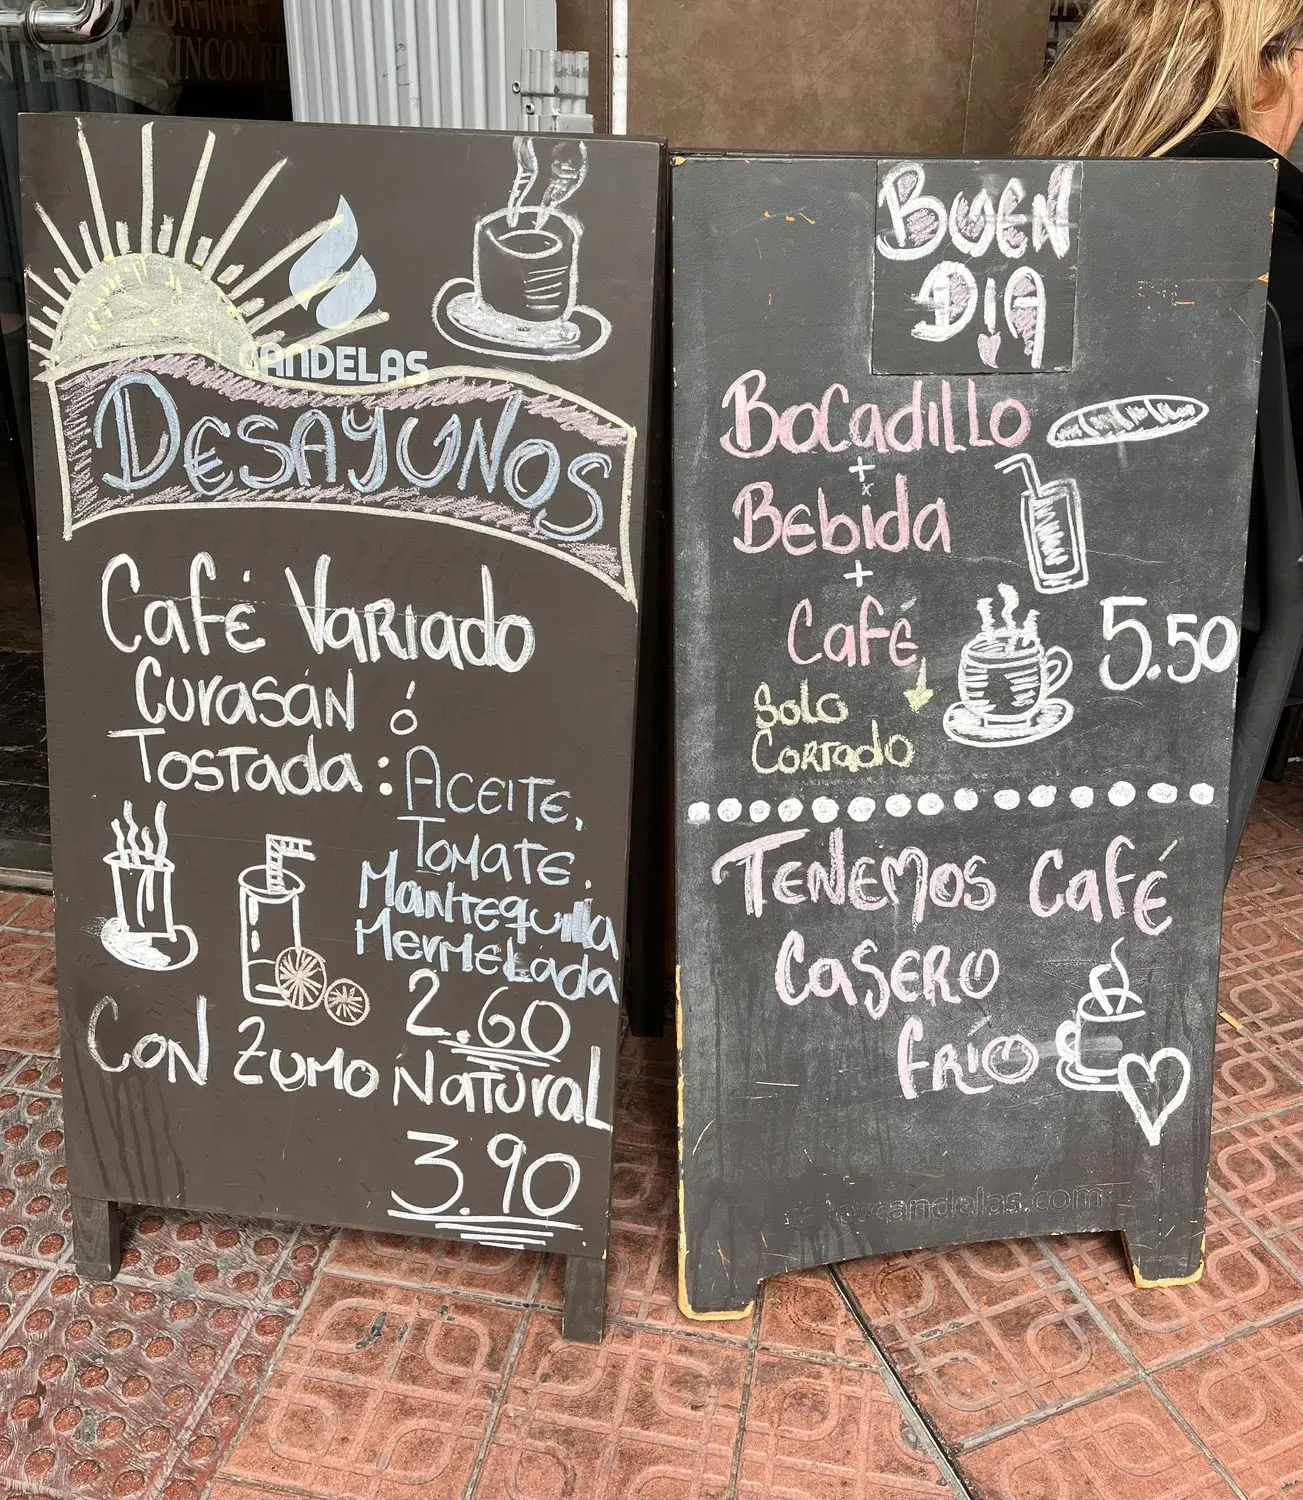 RINCON
CANDELAS
DESAYUNOS
Café Variado
Curasán ó
Tostada: Aceite,
Tomate.
Mantequilla
Mermelada
2.60
Con Zumo Natural
3.90
BUEN
DIA
Bocadillo
+
Bebida
+
Café
5.50
Solo
Cortado
Tenemos Café
Casero
frio
candelas.com